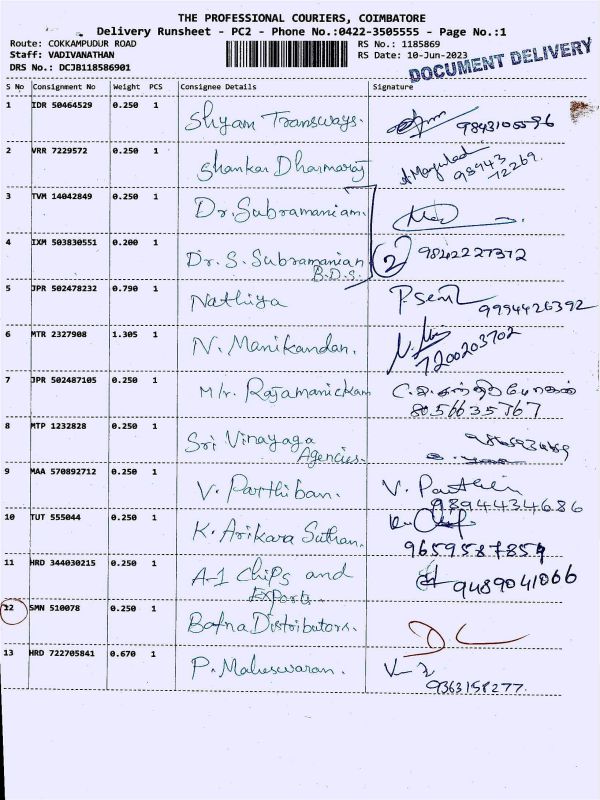 THE PROFESSIONAL COURIERS, COIMBATORE
Delivery Runsheet - PC2 - Phone No.:0422-3505555 - Page No.:1
Route: COKKAMPUDUR ROAD
Staff: VADIVANATHAN
DRS No.: DCJB118586901
RS No.: 1185869
RS Date: 10-Jun-2023
DOCUMENT DELIVERY
S No Consignment No Weight PCS Consignee Details Signature
1 IDR 50464529 0.250 1 Shyam Transways.
2 VRR 7229572 0.250 1 Shankar Dharmaraj 98943 72269.
3 TVM 14042849 0.250 1 Dr. Subramaniam.
4 IXM 503830551 0.200 1 Dr. S. Subramanian B.D.S. 2 9842227372
5 JPR 502478232 0.790 1 Nathiya P.Senil 9994426392
6 MTR 2327908 1.305 1 N. Manikandan. 7200203702
7 JPR 502487105 0.250 1 M/r. Rajamanickam 8056635767
8 MTP 1232828 0.250 1 Sri Vinayaga Agencies.
9 MAA 570892712 0.250 1 V. Parthiban. V. Parthi 9894434686
10 TUT 555044 0.250 1 K. Arikara Suthan. 9659587854
11 HRD 344030215 0.250 1 A-1 Chips and Exports. 9489041066
12 SMN 510078 0.250 1 Bafna Distributors.
13 HRD 722705841 0.670 1 P. Maheswaran. 9363158277.